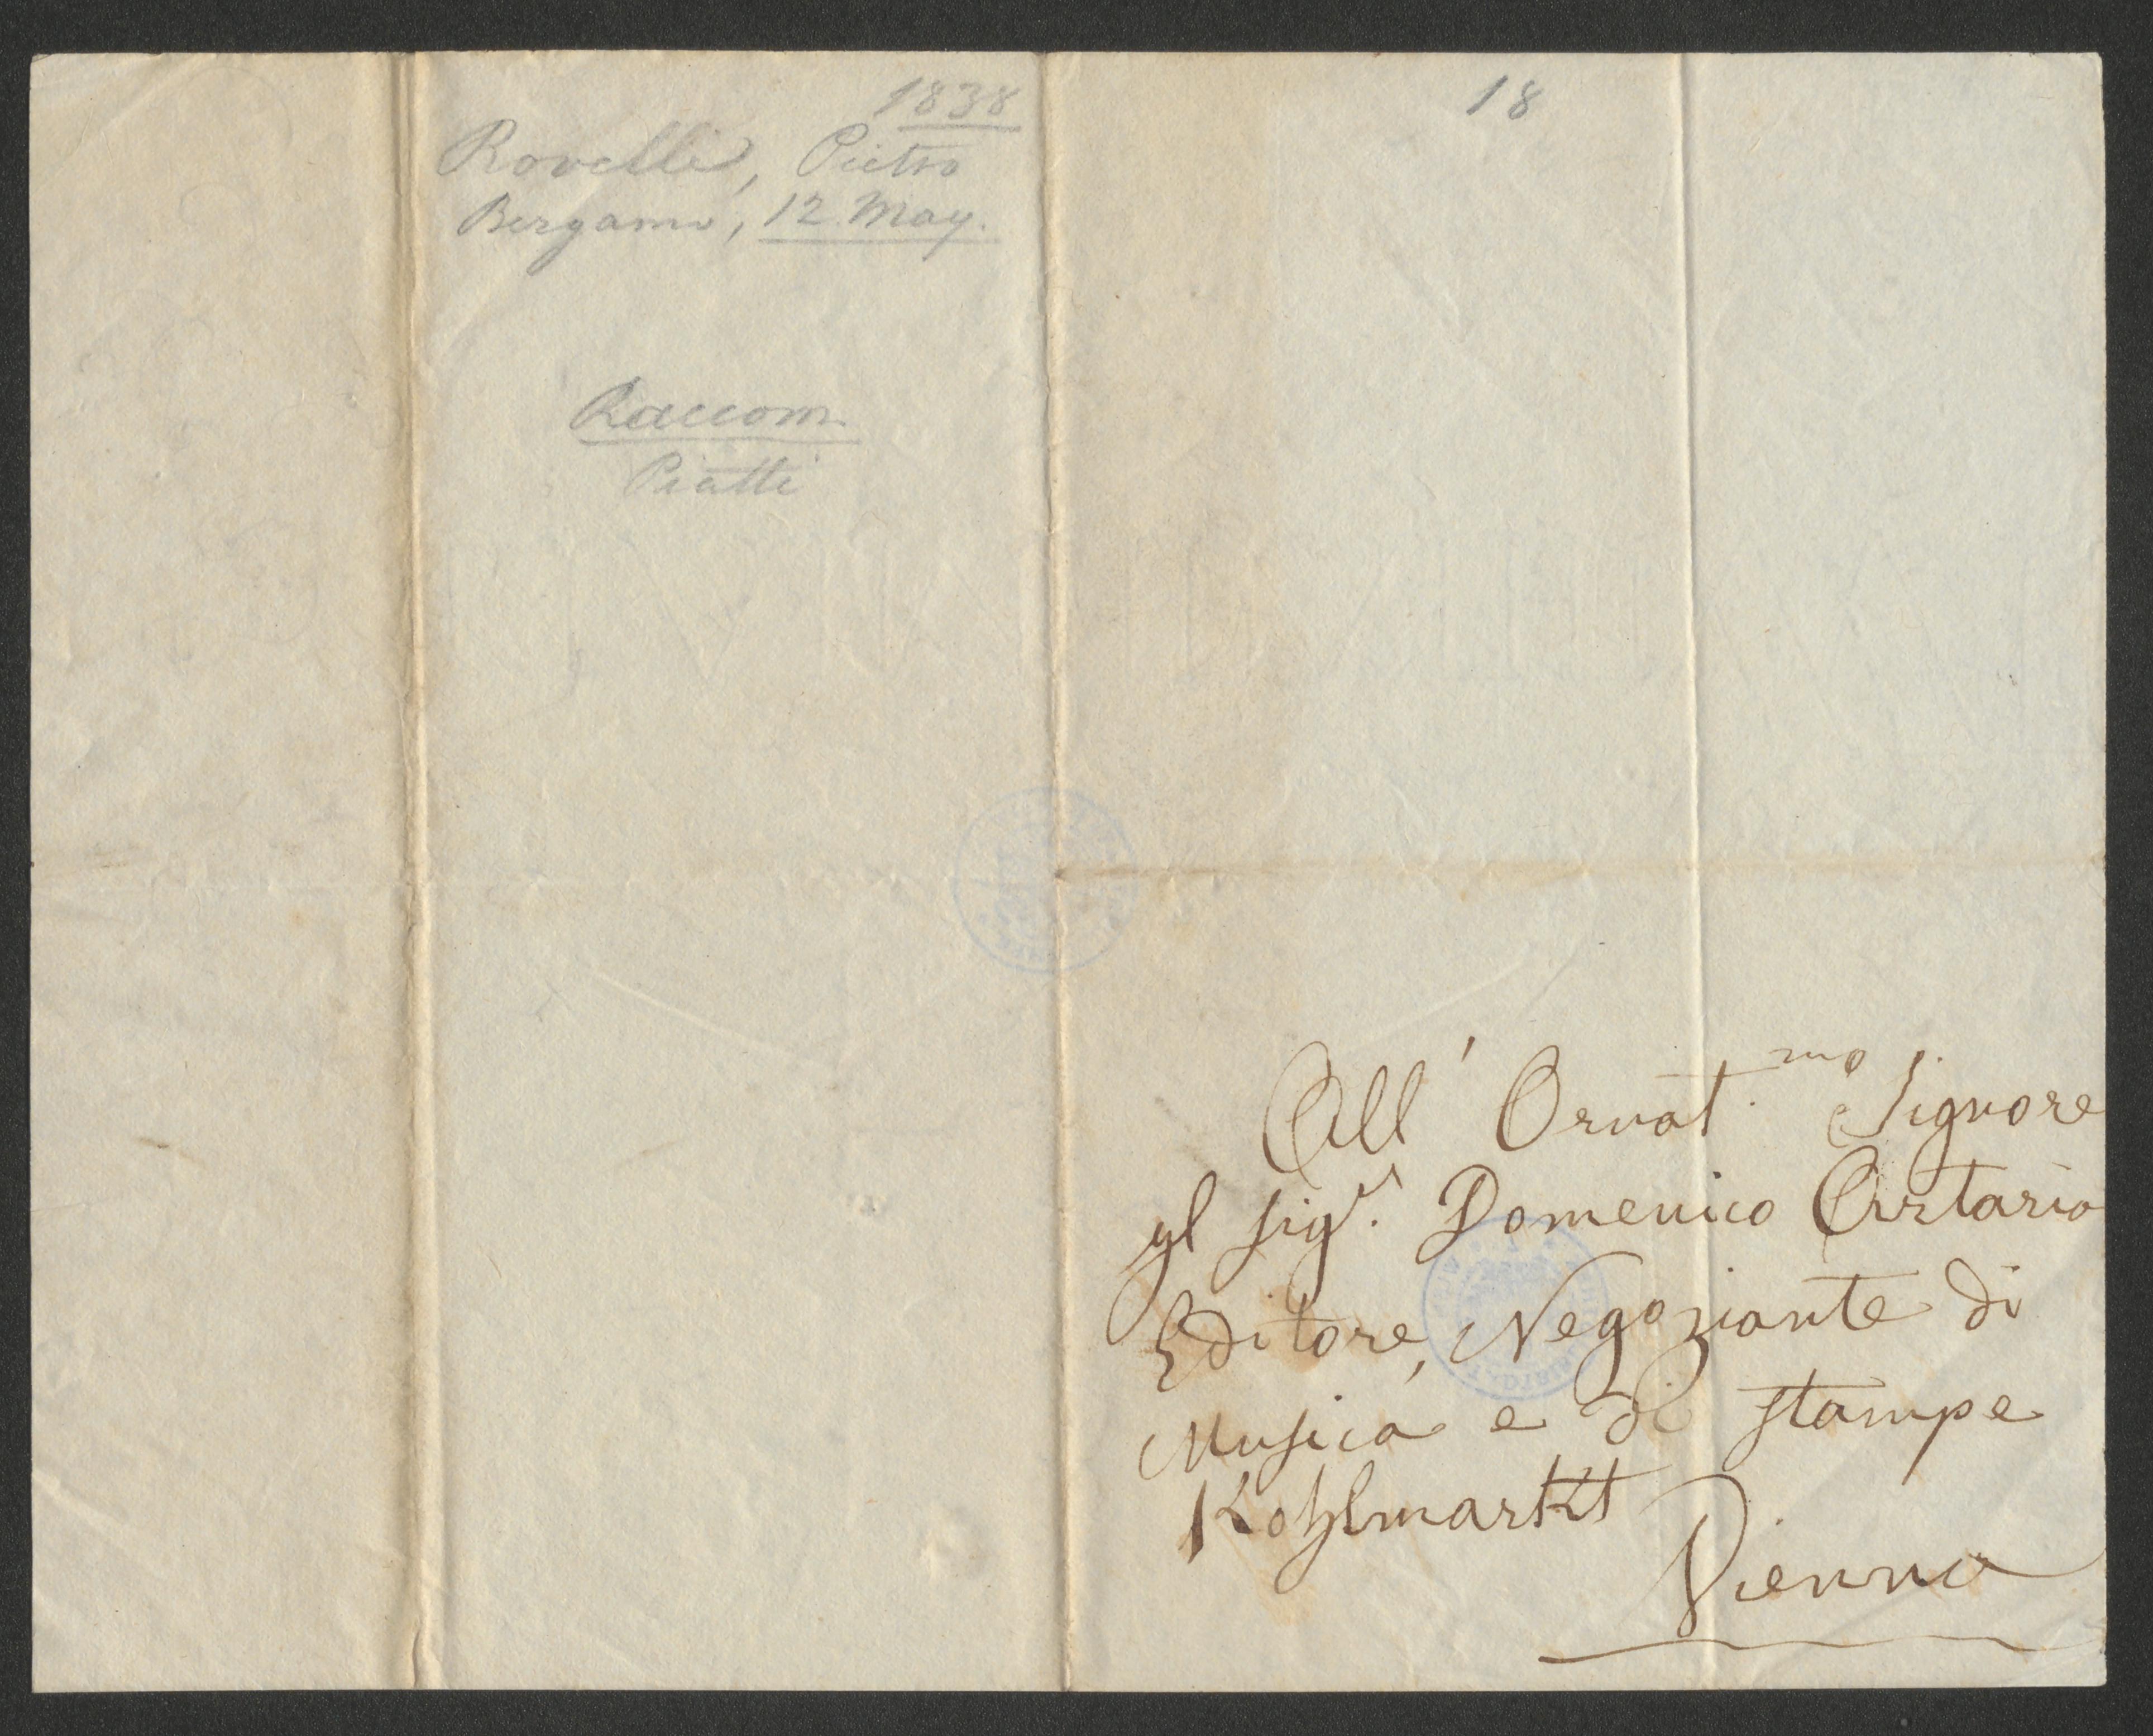 1838
Rovelli, Pietro
Bergamo, 12. May.
Raccom
Piatti
18
All' Ornat.mo Signore
Il sigr. Domenico Artaria
Editore, Negoziante di
Musica e di stampe
Kohlmarkt
Vienna